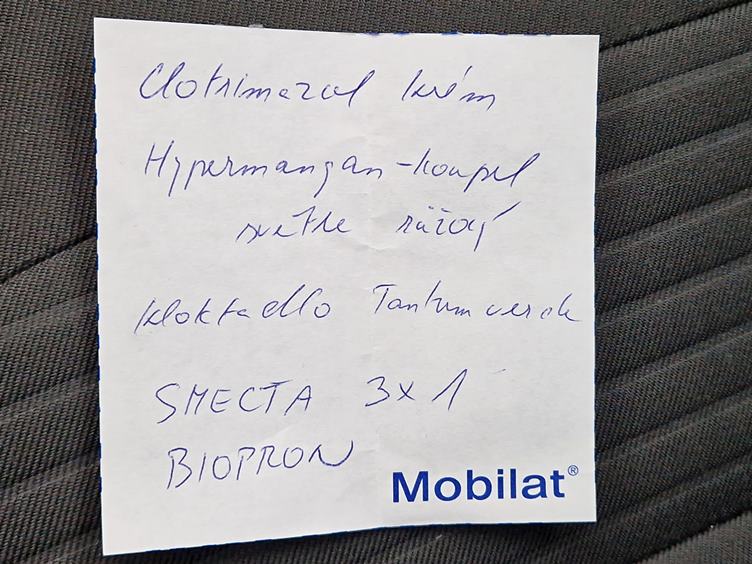 Clotrimazol krém
Hypermangan - koupel
světle růžový
kloktadlo Tantum verde
SMECTA 3x1
BIOPRON
Mobilat®